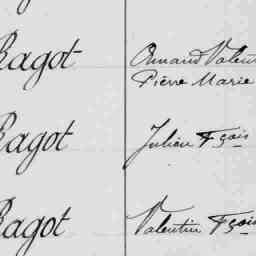 Ragot Armand Valent
Pierre Marie
Ragot Julien Fçois
Ragot Valentin Fçois